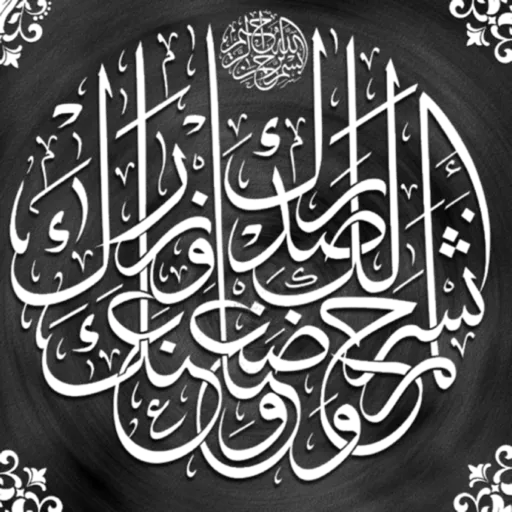 بسم الله الرحمن الرحيم
ألم نشرح لك صدرك ووضعنا عنك وزرك